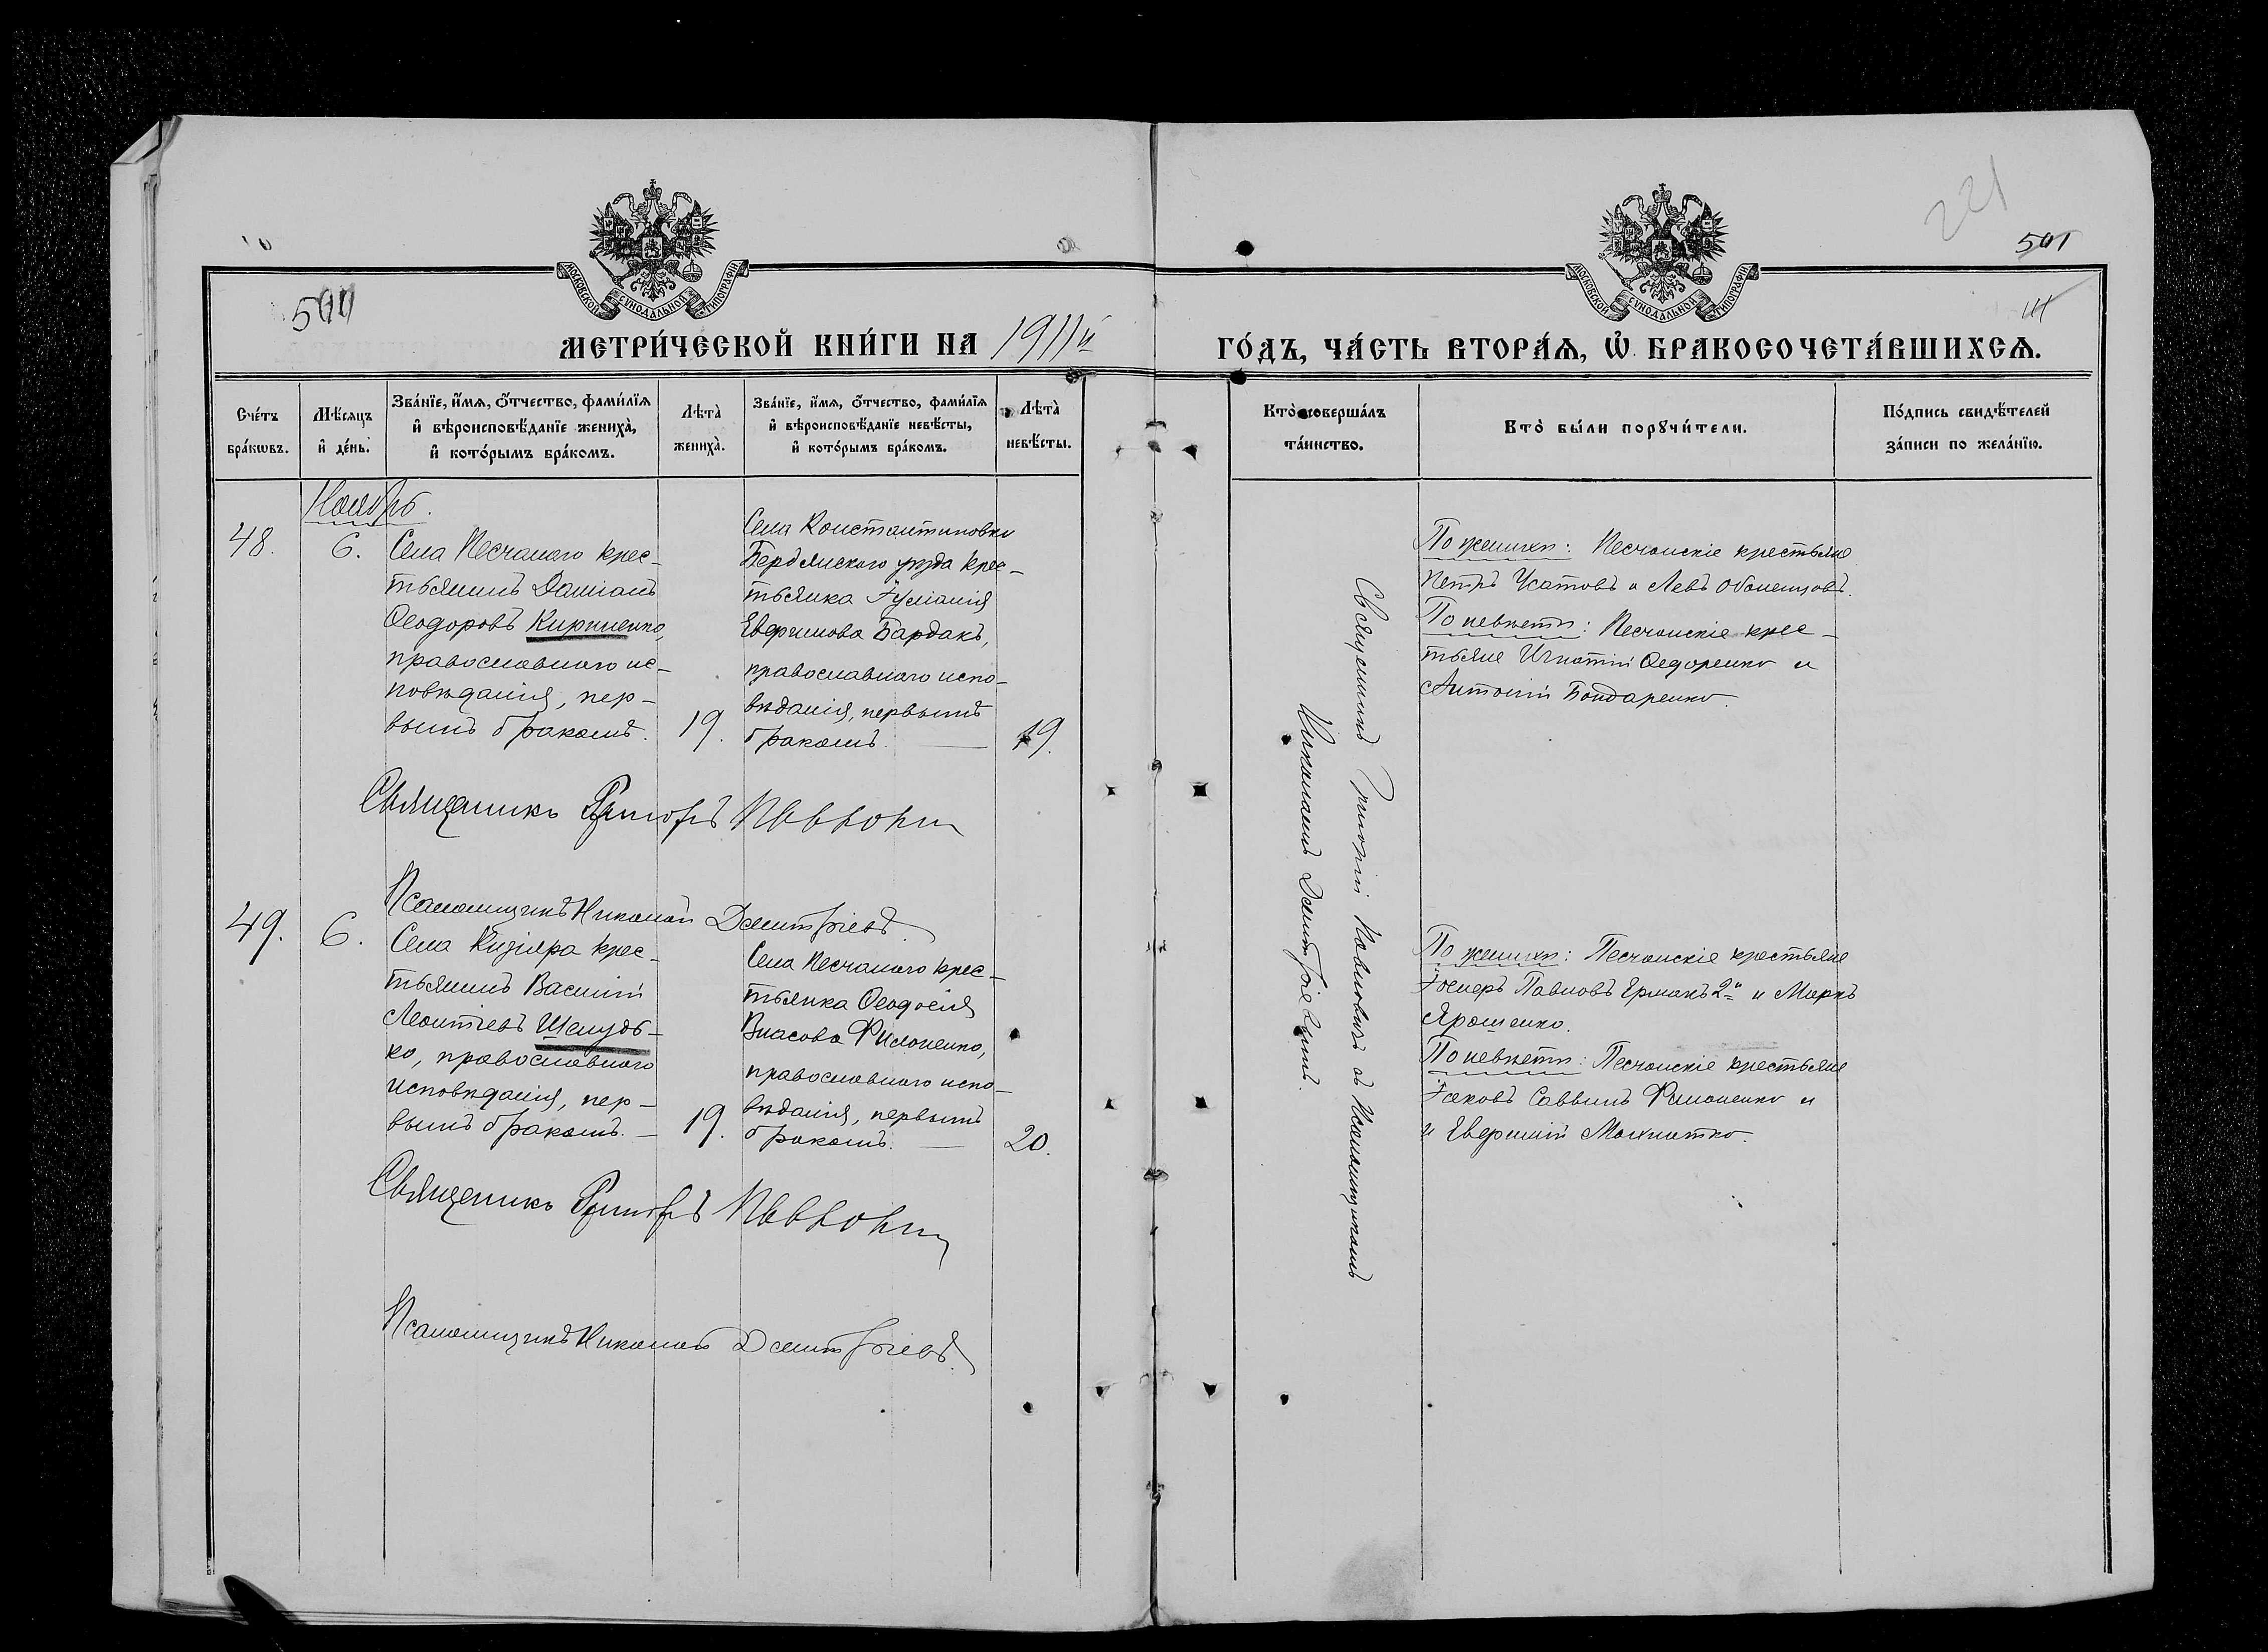 221
501
500
МОСКОВСКОЙ СУНОДАЛЬНОЙ ТИПОГРАФІИ
МОСКОВСКОЙ СУНОДАЛЬНОЙ ТИПОГРАФІИ
МЕТРИ́ЧЕСКОЙ КНИ́ГИ НА 1911й
ГО́ДЪ, ЧА́СТЬ ВТОРА́Ѧ, Ѡ҆ БРАКОСОЧЕТА́ВШИХСѦ.
Сче́тъ бра́кѡвъ.
Мѣ́сяцъ и҆ де́нь.
Зва́нїе, и҆́мѧ, о҆́тчество, фами́лїѧ
и҆ вѣроисповѣ́данїе жениха̀,
и҆ кото́рымъ бра́комъ.
Лѣта̀ жениха̀.
Зва́нїе, и҆́мѧ, о҆́тчество, фами́лїѧ
и҆ вѣроисповѣ́данїе невѣ́сты,
и҆ кото́рымъ бра́комъ.
Лѣта̀ невѣ́сты.
Кто̀ соверша́лъ
та́инство.
Кто̀ бы́ли порꙋчи́тели.
По́дпись свидѣ́телей
за́писи по жела́нїю.
Ноябрь.
48.
6.
Села Песчанаго крес-
тьянинъ Даміанъ
Ѳеодоровъ Кириченко,
православнаго ис-
повѣданія, пер-
вымъ бракомъ.
19.
Села Константиновки
Бердянскаго уѣзда крес-
тьянка Іуліанія
Евфимова Бардакъ,
православнаго испо-
вѣданія, первымъ
бракомъ.
19.
Священникъ Григорій Павловичъ съ Псаломщикомъ
Николаемъ Димитріевымъ.
По женихѣ: Песчанскіе крестьяне
Петръ Усатовъ и Левъ Обаленцовъ.
По невѣстѣ: Песчанскіе крес-
тьяне Игнатій Ѳедоренко и
Антоній Бондаренко.
Священникъ Григорій
Псаломщикъ Николай Димитріевъ.
49.
6.
Села Кизіяра крес-
тьянинъ Василій
Леонтіевъ Шелудь-
ко, православнаго
исповѣданія, пер-
вымъ бракомъ.
19.
Села Песчанаго крес-
тьянка Ѳеодосія
Власова Филоненко,
православнаго испо-
вѣданія, первымъ
бракомъ.
20.
По женихѣ: Песчанскіе крестьяне
Павловъ Ермакъ 2й и Маркъ
Ярошенко.
По невѣстѣ: Песчанскіе крестьяне
Іаковъ Саввинъ Филоненко и
и Евфимій Махнатко.
Священникъ Григорій
Псаломщикъ Николай Димитріевъ.